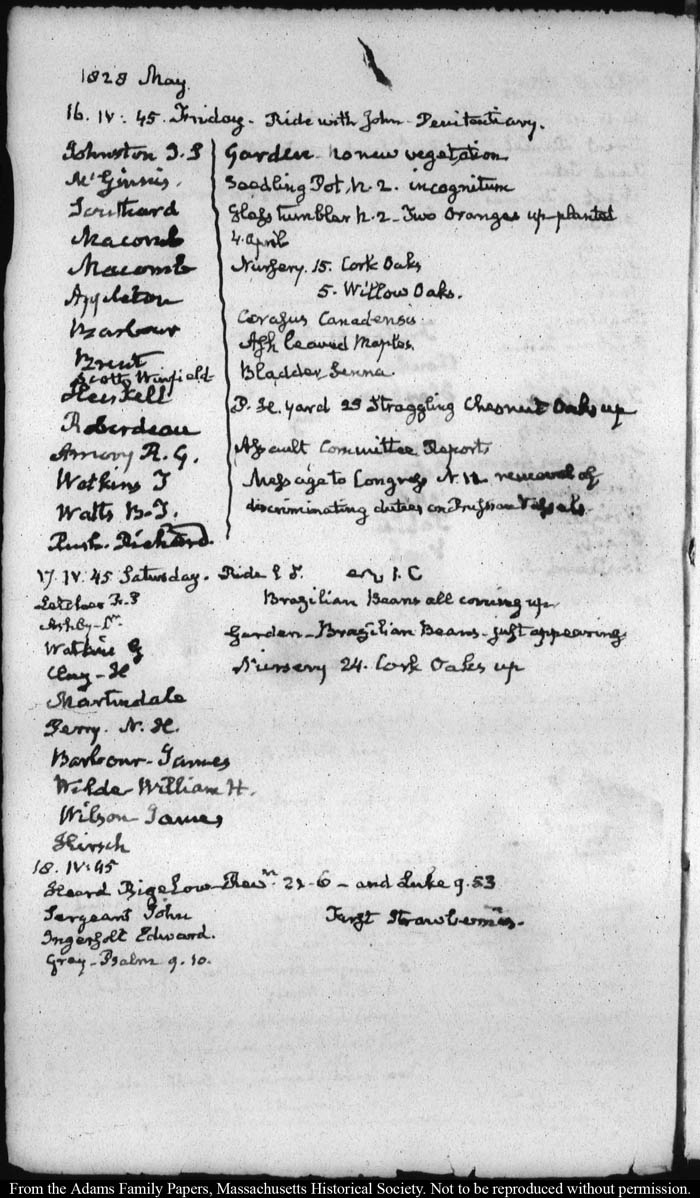 1828 May.
16. IV: 45. Friday. Ride with John Penitentiary.
Johnston J. S
McGinnis.
Southard
Macomb
Macomb
Appleton
Barbour
Brent
Scott, Winfield
Heiskell
Roberdeau
Amory R. G.
Watkins T
Watts B. T.
Rush. Richard.
Garden no new vegetation
Seedling Pot, N. 2. incognitum
Glass tumbler N. 2 - Two Oranges up planted
4. April
Nursery. 15. Cork Oaks
5. Willow Oaks.
Cerasus Canadensis
Ash leaved Maples.
Bladder Senna.
P. H. yard 29 Straggling Chesnut Oaks up
Assault Committee Reports
Message to Congress N. 12. removal of
discriminating duties on Prussian Vessels.
17. IV. 45 Saturday. Ride
Letcher R. P
Ashby - Dr.
Watkins G
Clay - H
Martindale
Perry. N. H.
Barbour - James
Wilde William H.
Wilson James
Hirsch
Brazilian Beans all coming up
Garden - Brazilian Beans - just appearing
Nursery 24. Cork Oaks up
18. IV: 45
Heard Bigelow Revn. 22-6 - and Luke 9. 53
Sergeant John
Ingersoll Edward.
Gray - Psalm 9. 10.
First Strawberries.
From the Adams Family Papers, Massachusetts Historical Society. Not to be reproduced without permission.